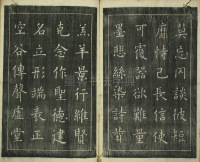 莫忘罔談彼短
靡恃己長信使
可覆器欲難量
墨悲絲染詩讚
羔羊景行維賢
克念作聖德建
名立形端表正
空谷傳聲虛堂